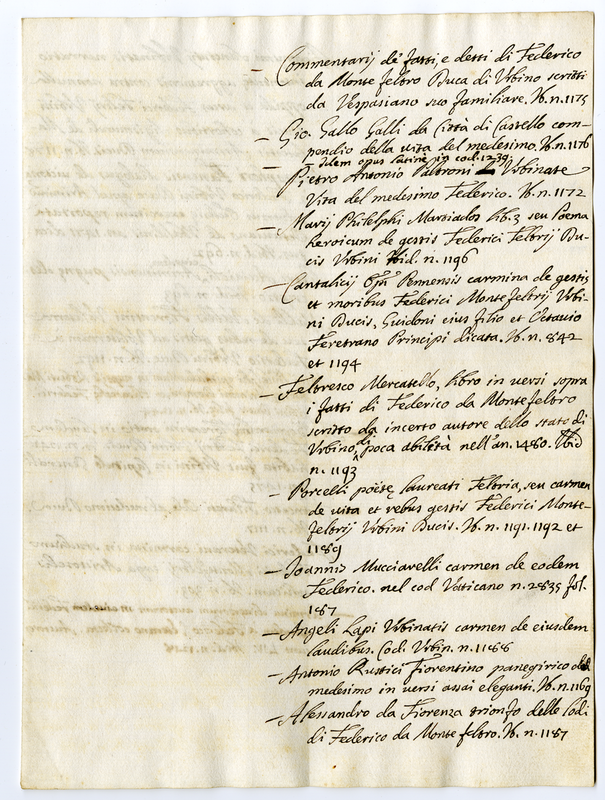 – Commentarij de' fatti, e detti di Federico
da Monte feltro Duca di Urbino scritti
da Vespasiano suo familiare. Ib. n. 1175
– Gio. Gallo Galli da Città di Castello com-
pendio della vita del medesimo. Ib. n. 1176
– Idem opus latine in cod. 1239
– Pietro Antonio Paltroni Urbinate
Vita del medesimo Federico. Ib. n. 1172
– Marij Philelphi Martiados lib. 3 seu Poema
heroicum de gestis Federici Feltrij Du-
cis Urbini Ibid. n. 1196
– Cantalicij Epi Pennensis carmina de gestis
et moribus Federici Montefeltrij Urbi-
ni Ducis, Guidoni eius filio et Octavio
Feretrano Principi dicata. Ib. n. 842
et 1194
– Feltresco Mercatello, libro in versi sopra
i fatti di Federico da Montefeltro
scritto da incerto autore dello stato di
Urbino, di poca abilità nell'an. 1480. Ibid
n. 1193
– Porcelli poëtę laureati Feltria, seu carmen
de vita et rebus gestis Federici Monte-
feltrij Urbini Ducis. Ib. n. 1191. 1192 et
1189
– Joannis Mucciarelli carmen de eodem
Federico. nel cod Vaticano n. 2835 fol.
187
– Angeli Lapi Urbinatis carmen de eiusdem
laudibus. Cod. Urbin. n. 1188
– Antonio Rustici Fiorentino panegirico del
medesimo in versi assai eleganti. Ib. n. 1169
– Alessandro da Fiorenza trionfo delle lodi
di Federico da Monte feltro. Ib. n. 1187